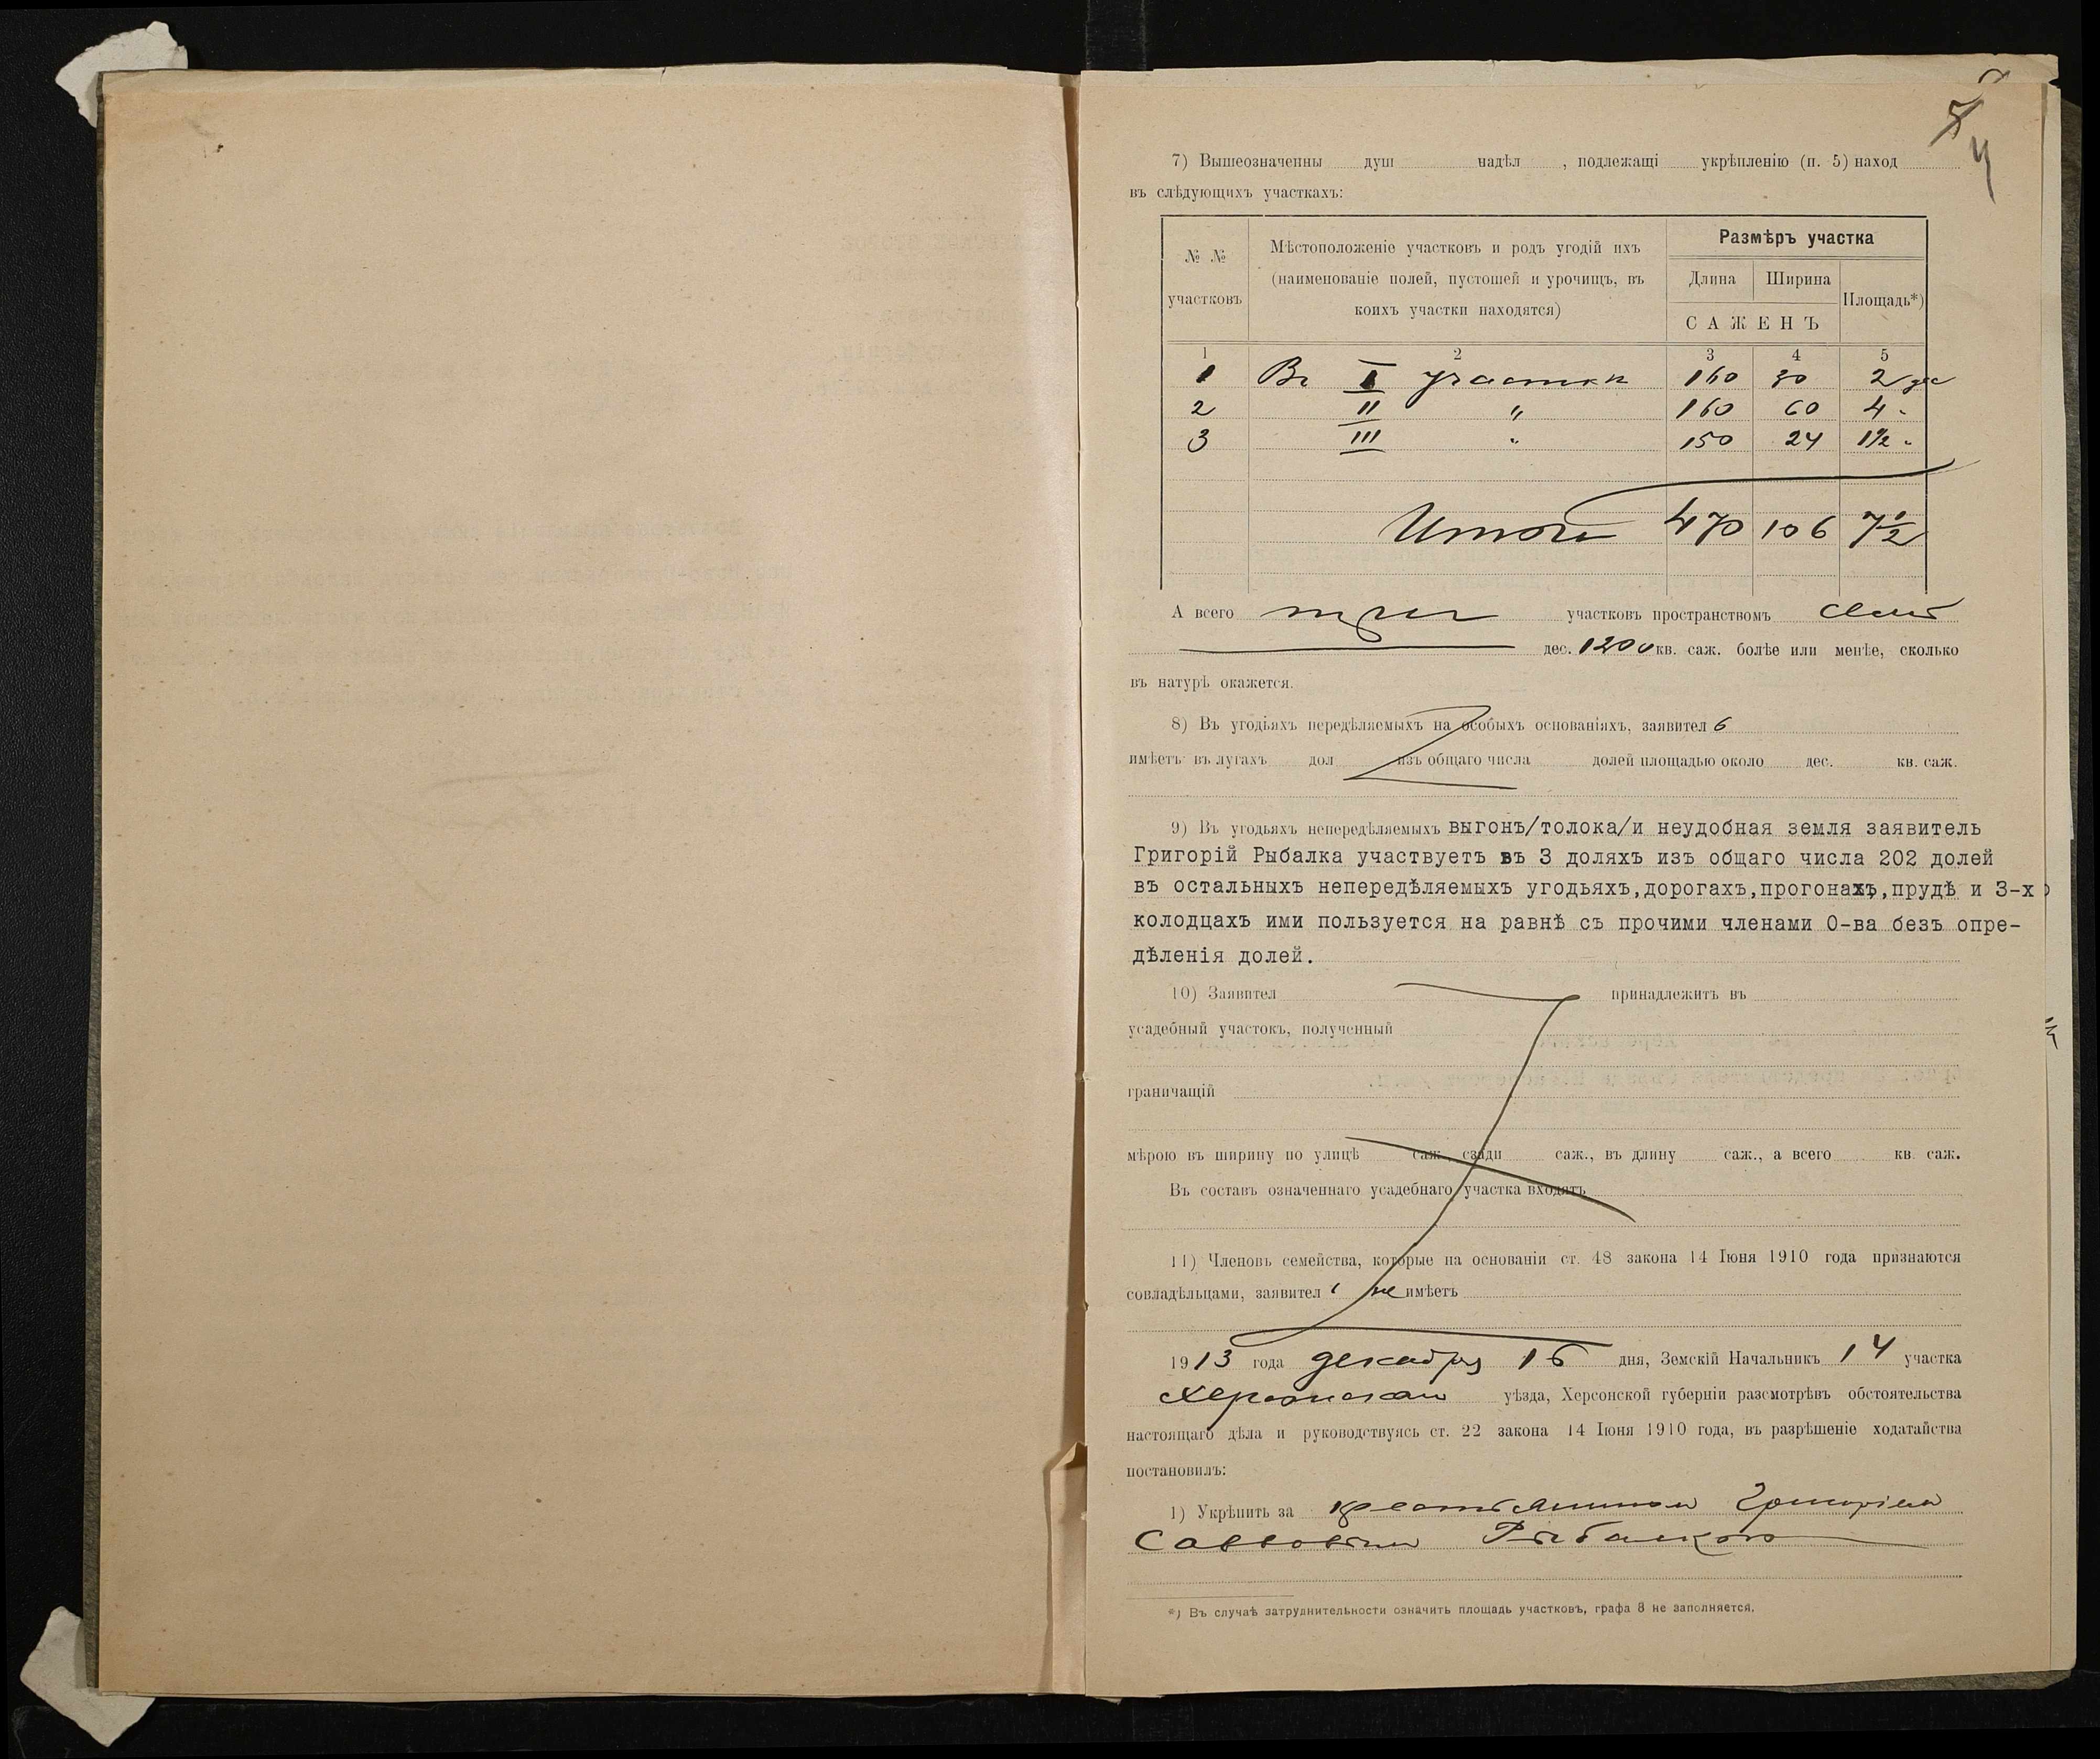 5
4
7) Вышеозначенны душ надѣл , подлежащі укрѣпленію (п. 5) наход
въ слѣдующихъ участкахъ:
№ № участковъ
Мѣстоположеніе участковъ и родъ угодій ихъ
(наименованіе полей, пустошей и урочищъ, въ
коихъ участки находятся)
Размѣръ участка
Длина Ширина Площадь*)
САЖЕНЬ
1 2 3 4 5
1 Въ I участки 160 30 2 дес
2 II " 160 60 4 "
3 III " 150 24 1½ "
Итого 470 106 7½
А всего три участковъ пространствомъ семь
дес. 1200 кв. саж. болѣе или менѣе, сколько
въ натурѣ окажется.
8) Въ угодіяхъ передѣляемыхъ на особыхъ основаніяхъ, заявител ь
имѣетъ въ лугахъ дол изъ общаго числа долей площадью около дес. кв. саж.
9) Въ угодьяхъ непередѣляемыхъ выгонъ/толока/и неудобная земля заявитель
Григорій Рыбалка участвуетъ въ 3 доляхъ изъ общаго числа 202 долей
въ остальныхъ непередѣляемыхъ угодьяхъ,дорогахъ,прогонахъ,прудѣ и 3-хъ
колодцахъ ими пользуется на равнѣ съ прочими членами О-ва безъ опре-
дѣленія долей.
10) Заявител принадлежитъ въ
усадебный участокъ, полученный
граничащій
мѣрою въ ширину по улицѣ саж., сзади саж., въ длину саж., а всего кв. саж.
Въ составъ означеннаго усадебнаго участка входятъ
11) Членовъ семейства, которые на основаніи ст. 48 закона 14 Іюня 1910 года признаются
совладѣльцами, заявител ь не имѣетъ
1913 года декабря 16 дня, Земскій Начальникъ 14 участка
Херсонскаго уѣзда, Херсонской губерніи разсмотрѣвъ обстоятельства
настоящаго дѣла и руководствуясь ст. 22 закона 14 Іюня 1910 года, въ разрѣшеніе ходатайства
постановилъ:
1) Укрѣпить за крестьяниномъ Григоріемъ
Савовымъ Рыбалкою
*) Въ случаѣ затруднительности означить площадь участковъ, графа 8 не заполняется.